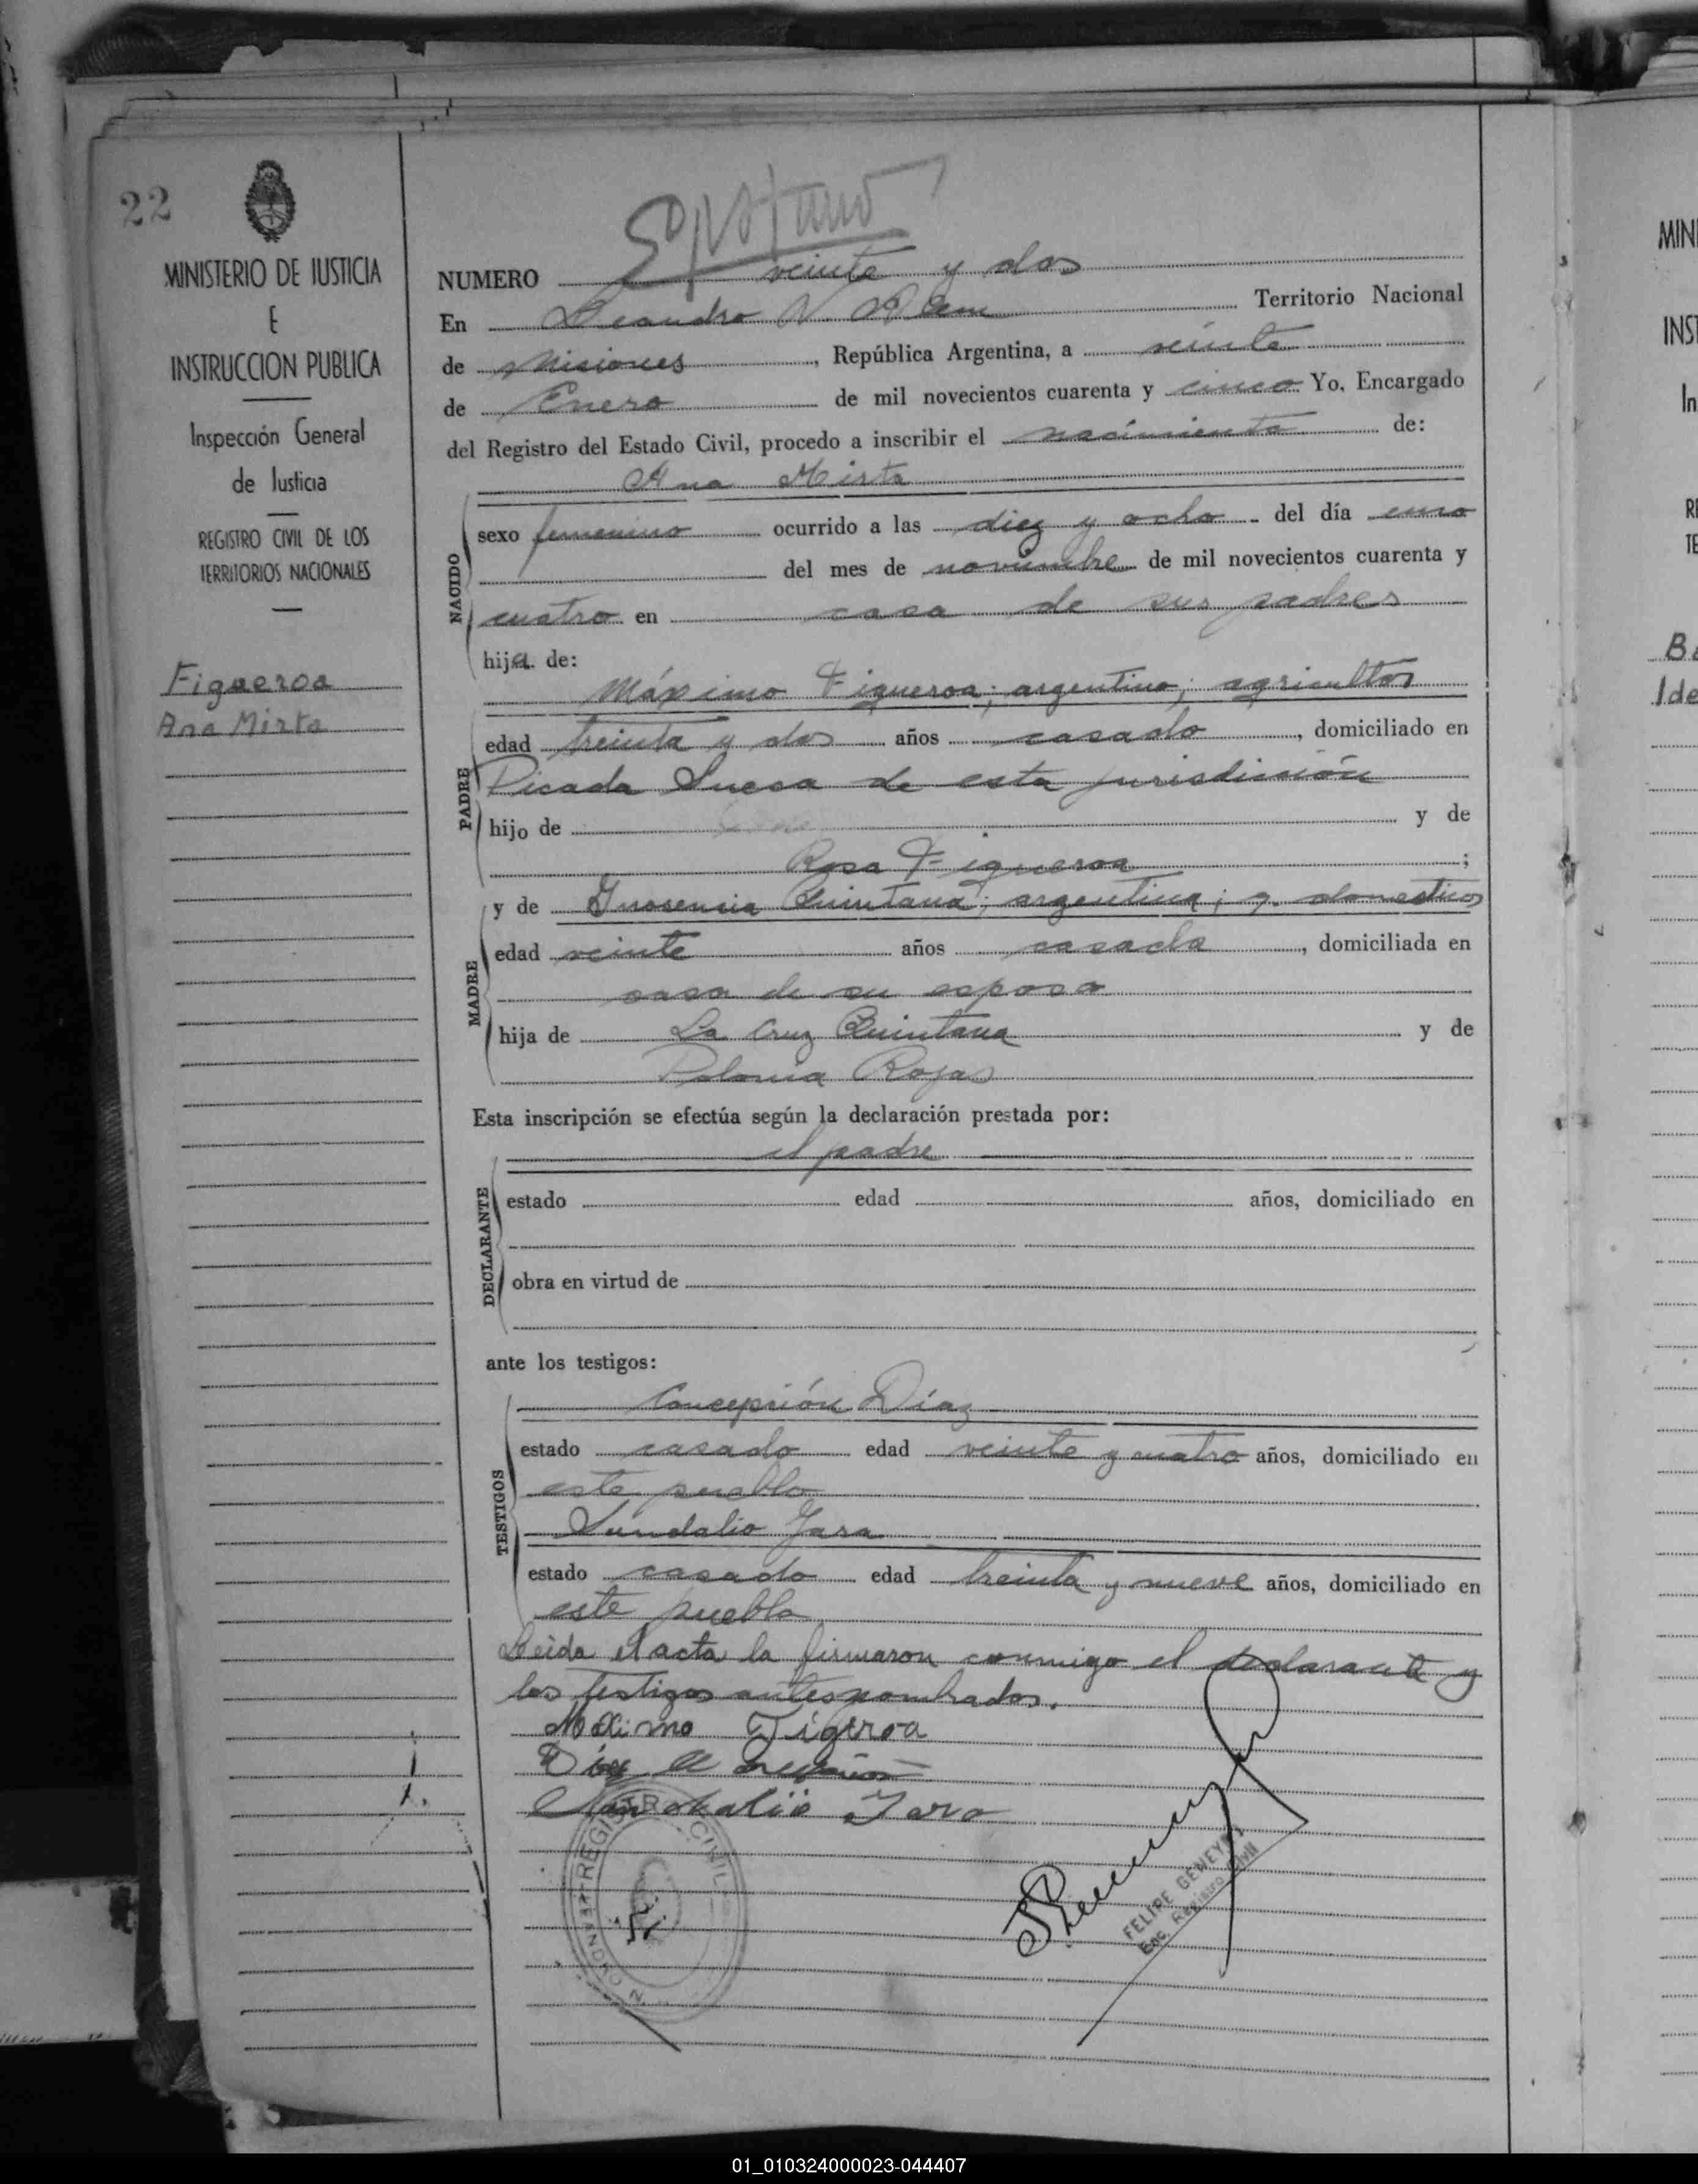 22
MINISTERIO DE JUSTICIA
E
INSTRUCCION PUBLICA
Inspección General
de Justicia
REGISTRO CIVIL DE LOS
TERRITORIOS NACIONALES
Figueroa
Ana Mirta
NUMERO veinte y dos
En Leandro N. Alem Territorio Nacional
de Misiones, República Argentina, a veinte
de Enero de mil novecientos cuarenta y cinco Yo, Encargado
del Registro del Estado Civil, procedo a inscribir el nacimiento de:
Ana Mirta
NACIDO
sexo femenino ocurrido a las diez y ocho del día uno
del mes de noviembre de mil novecientos cuarenta y
cuatro en casa de sus padres
hija de:
Máximo Figueroa; argentino; agricultor
PADRE
edad treinta y dos años casado, domiciliado en
Picada Sueca de esta jurisdicción
hijo de y de
Rosa Figueroa;
y de Inosencia Quintana; argentina; q. domesticos
MADRE
edad veinte años casada, domiciliada en
casa de su esposo
hija de La Cruz Quintana y de
Polonia Rojas
Esta inscripción se efectúa según la declaración prestada por:
el padre
DECLARANTE
estado edad años, domiciliado en
obra en virtud de
ante los testigos:
Concepción Díaz
TESTIGOS
estado casado edad veinte y cuatro años, domiciliado en
este pueblo
Sandalio Jara
estado casado edad treinta y nueve años, domiciliado en
este pueblo
Leída el acta la firmaron conmigo el declarante y
los testigos antes nombrados.
Maximo Figeroa
Sandalio Jara
REGISTRO CIVIL
FELIPE GENEYRO
Enc. Registro Civil
MINI
INST
In
RE
TE
Ba
Ide
01_010324000023-044407